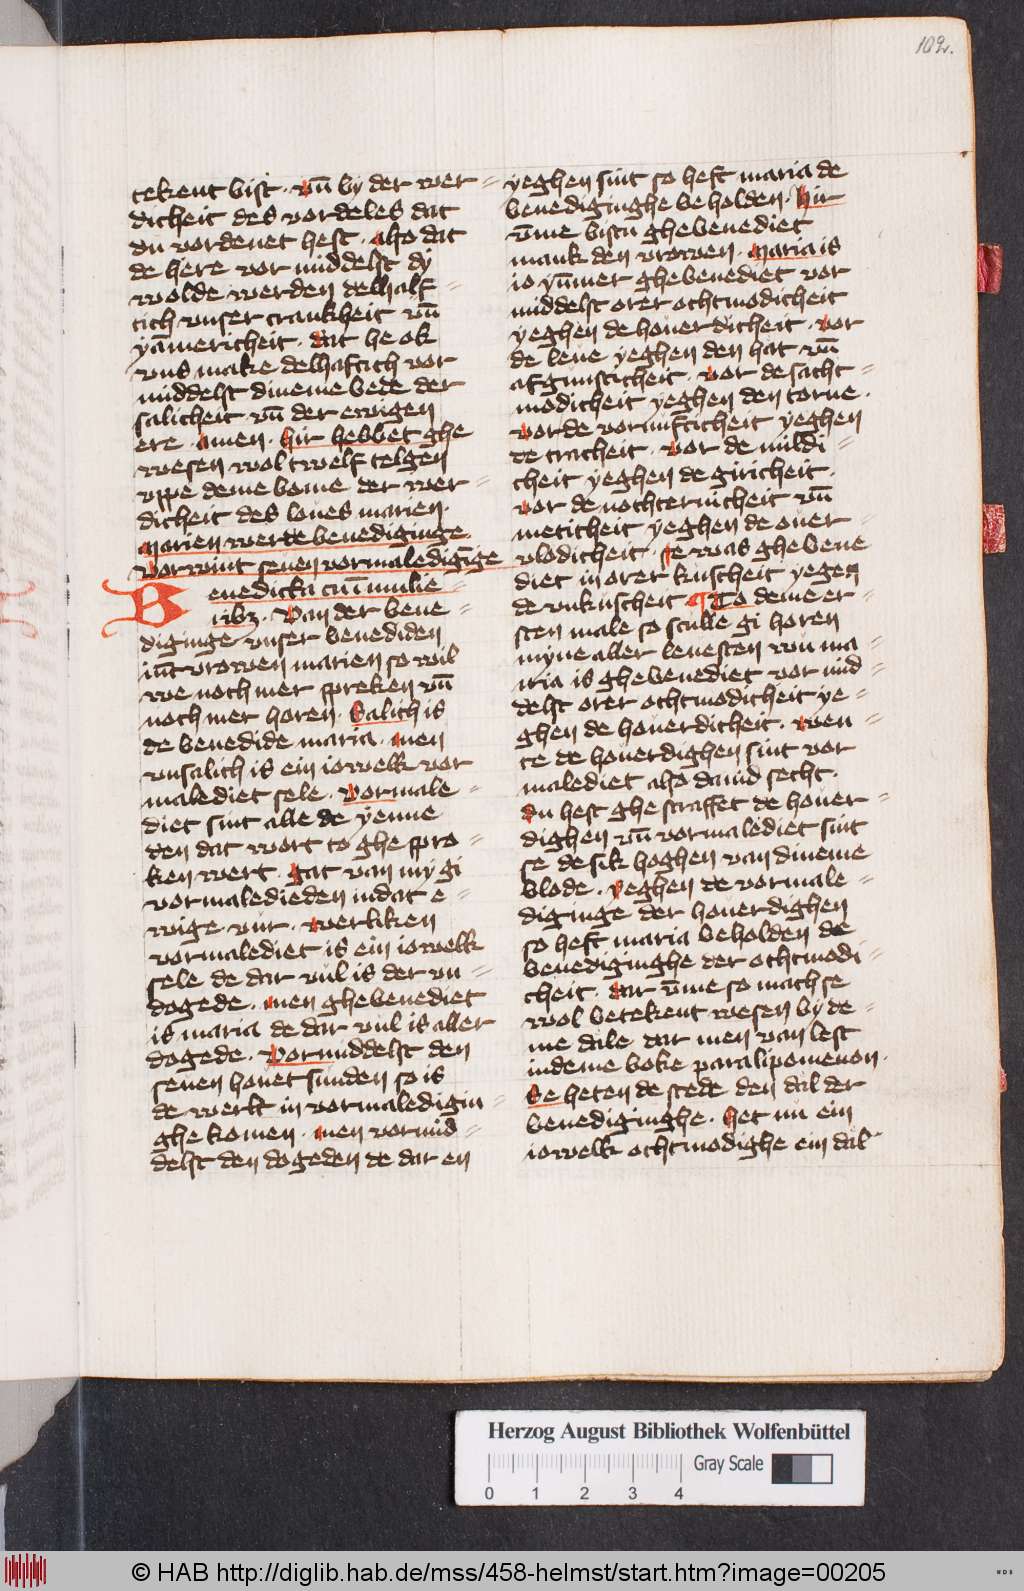 102.
tekent bist · vn̄ by der wer=
dicheit des vordeles dat
du vordenet hest · Also dat
de here vor middelst dy
wolde werden delhaf=
tich vnser crankheit vn̄
yāmericheit · dat he ok
vns make delhaftich vor
middelst dineme bede der
salicheit vn̄ der ewigen
ere · Amen · Hir hebbet ghe
wesen wol twelf telgen
vppe deme bome der wer=
dicheit des loues marien ·
Marien werde benediginge
Vorwint seuen vormaledigīge
Benedicta cū mulie=
ribz · Van der bene=
diginge vnser benediden
iūt vrowen marien so wil
we noch mer spreken vn̄
noch mer horen · Salich is
de benedide maria · Men
vnsalich is ein iowelk vor
malediet sele · Vormale=
diet sint alle de yenne
den dat wort to ghe spro=
ken wert · Gat van my gi
vormaledieden in dat e=
wige vur · Werliken
vormalediet is ein iowelk
sele de dar vul is der vn=
dogede · Men ghebenediet
is maria de dar vul is aller
dogede · Vormiddelst den
seuen houet sunden so is
de werlt in vormaledigin=
ghe komen · Men vormid=
delst den dogeden de dar en
yeghen sint so heft maria de
benediginghe beholden · Hir
v̄me bistu ghebenediet
mank den vrowen · Maria is
io yūmer ghebenediet vor
middelst orer othmodicheit
yeghen de houerdicheit · Vor
de leue yeghen den hat vn̄
afgunsticheit · Vor de sacht=
modicheit yeghen den torne ·
Vor de vornufticheit yeghen
de tracheit · Vor de mildi=
cheit yeghen de giricheit ·
Vor de nochternicheit vn̄
meticheit yeghen de ouer=
vlodicheit · Se was ghebene
diet in orer kuscheit yegen
de vnkuscheit ¶ To deme er=
sten male so sculle gi horen
myne aller leuesten wu ma=
ria is ghebenediet vor mid=
delst orer ochtmodicheit ye=
ghen de houerdicheit · Wen=
te de houerdighen sint vor
malediet also dauid secht ·
Du hest ghe straffet de houer=
dighen vn̄ vormalediet sint
se de sik hoghen van dineme
blode · Yeghen de vormale=
diginge der houerdighen
so heft maria beholden de
benediginghe der ochtmodi=
cheit · Dar v̄me so mach se
wol betekent wesen by de=
me dale dar men van lest
in deme boke paralipomenon ·
Se heten de stede den dal der
benediginghe · Het nu ein
iowelk ochtmodighe ein dal
Herzog August Bibliothek Wolfenbüttel
Gray Scale
0 1 2 3 4
© HAB http://diglib.hab.de/mss/458-helmst/start.htm?image=00205